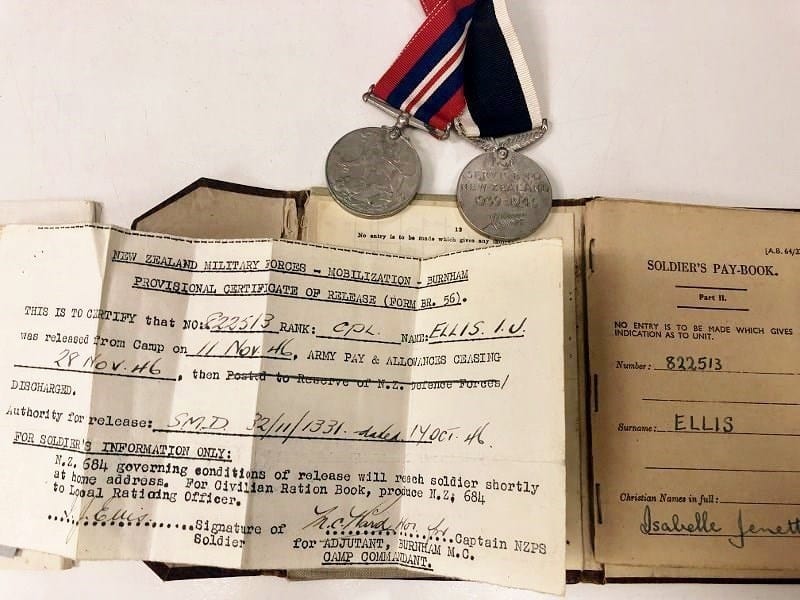 SERVICE TO
NEW ZEALAND
1939-1945
13
No entry is to be made which gives any
NEW ZEALAND MILITARY FORCES - MOBILIZATION - BURNHAM
PROVISIONAL CERTIFICATE OF RELEASE (FORM BR. 56).
THIS IS TO CERTIFY that NO: 822513 RANK: CPL. NAME: ELLIS. I.J.
was released from Camp on 11 NOV. 46, ARMY PAY & ALLOWANCES CEASING
28 NOV. 46, then Posted to Reserve of N.Z. Defence Forces/
DISCHARGED.
Authority for release: S.M.D. 32/11/1331 dated 14 OCT. 46.
FOR SOLDIER'S INFORMATION ONLY:
N.Z. 684 governing conditions of release will reach soldier shortly
at home address. For Civilian Ration Book, produce N.Z. 684
to Local Rationing Officer.
I.J. Ellis. Signature of Captain NZPS
Soldier for ADJUTANT, BURNHAM M.C.
CAMP COMMANDANT.
[A.B. 64/2
SOLDIER'S PAY-BOOK.
Part II.
NO ENTRY IS TO BE MADE WHICH GIVES
INDICATION AS TO UNIT.
Number: 822513
Surname: ELLIS
Christian Names in full:
Isabelle Jenett